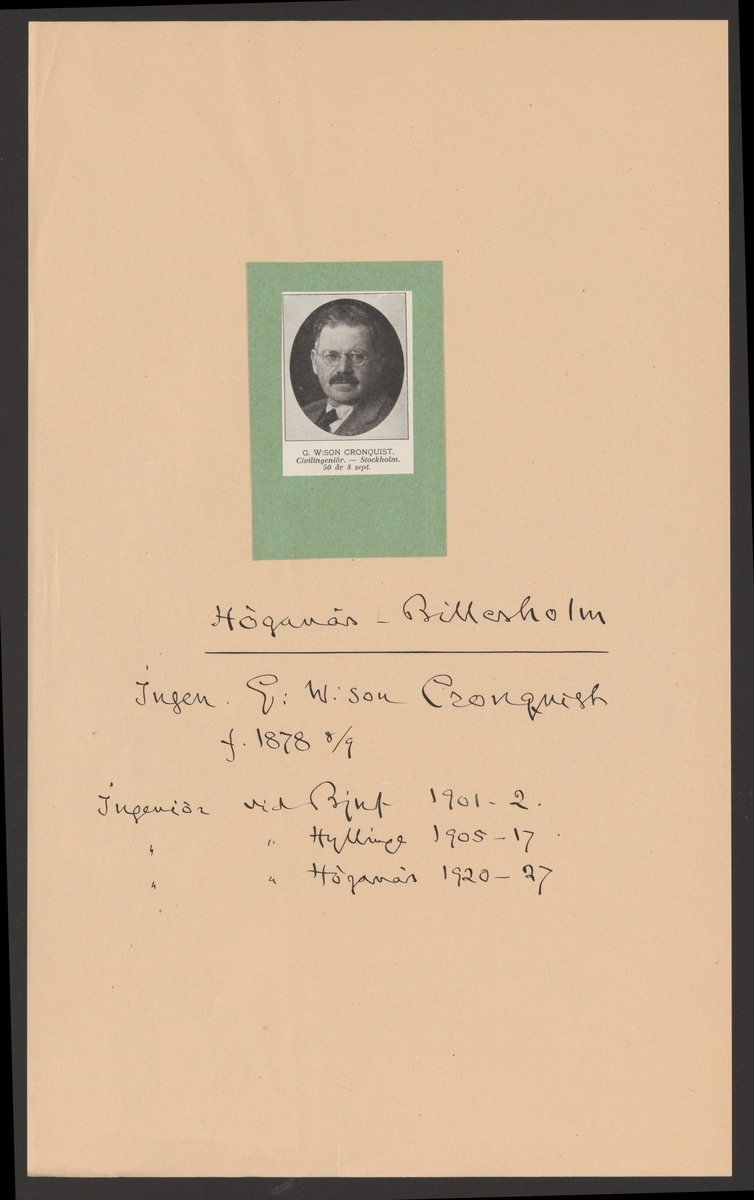 G. W:SON CRONQUIST.
Civilingeniör. — Stockholm.
50 år 8 sept.
Höganäs - Billesholm
Ingen. G: W:son Cronquist
f. 1878 8/9
Ingeniör vid Bjuf 1901-2.
" " Hyllinge 1905-17
" " Höganäs 1920-27